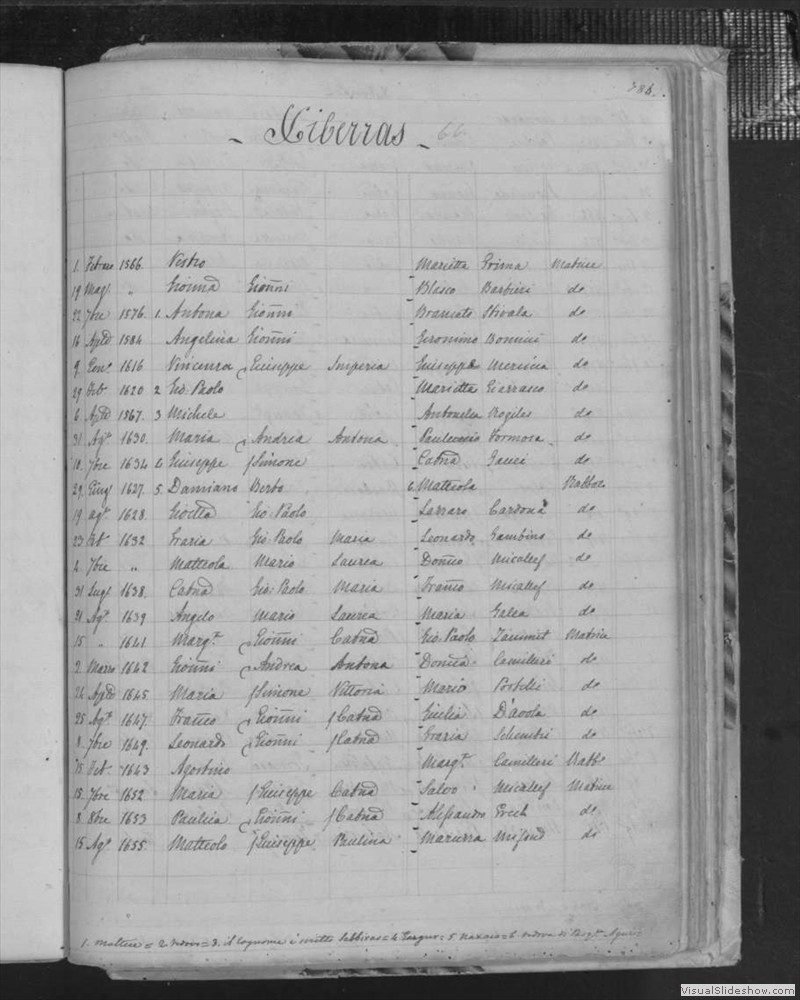 786.
- Xiberras - 66
1 Febraro 1566. Pietro Marietta Grima Matrice
19 Magº " Gionna Gionni Blasco Barbieri do
22 7bre 1576. 1. Antona Gionni Brancato Stivala do
16 1584 Angelica Gionni Geronimo Bonnici do
9 Genº 1616 Vincenza Giuseppe Imperia Giuseppe do
29 1620 2 Gio: Paolo Marietta do
6 1567. 3 Michele Antonella do
31 Agº 1630. Maria Andrea Antona Formosa do
10 7bre 1634 4 Giuseppe Simone Catnã Gauci do
29 Giugº 1627. 5. Damiano Berto 6 Matteola Rabbato
19 agº 1628. Gio: Paolo Lazzaro Cardona do
23 1632 Grazia Gio: Paolo Maria Leonardo Gambino do
4 7bre " Matteola Mario Laurea Domco Micallef do
31 Lugº 1638. Catnã Gio: Paolo Maria Franco Micallef do
21 Agº 1639 Angelo Mario Laurea Maria Galea do
15 " 1641 Margta Gionni Catnã Gio: Paolo Zammit Matrice
2 Marzo 1642 Gionni Andrea Antona Camilleri do
24 1645 Maria Simone Vittoria Mario Portelli do
25 Agº 1647. Franco Gionni Catnã Giulia D'avola do
8 7bre 1649. Leonardo Gionni Catnã Grazia Schembri do
15 1643 Agostino Margta Camilleri Rabbº
15 7bre 1652 Maria Giuseppe Catnã Salvo Micallef Matrice
8 8bre 1653 Paulica Gionni Catnã Alessandro Grech do
15 Agº 1655. Matteolo Giuseppe Paulina Mifsud do
1. = 2 vedovo = 3. il cognome è scritto = 4 = 5 Naxaro = 6 vedova di
VisualSlideshow.com